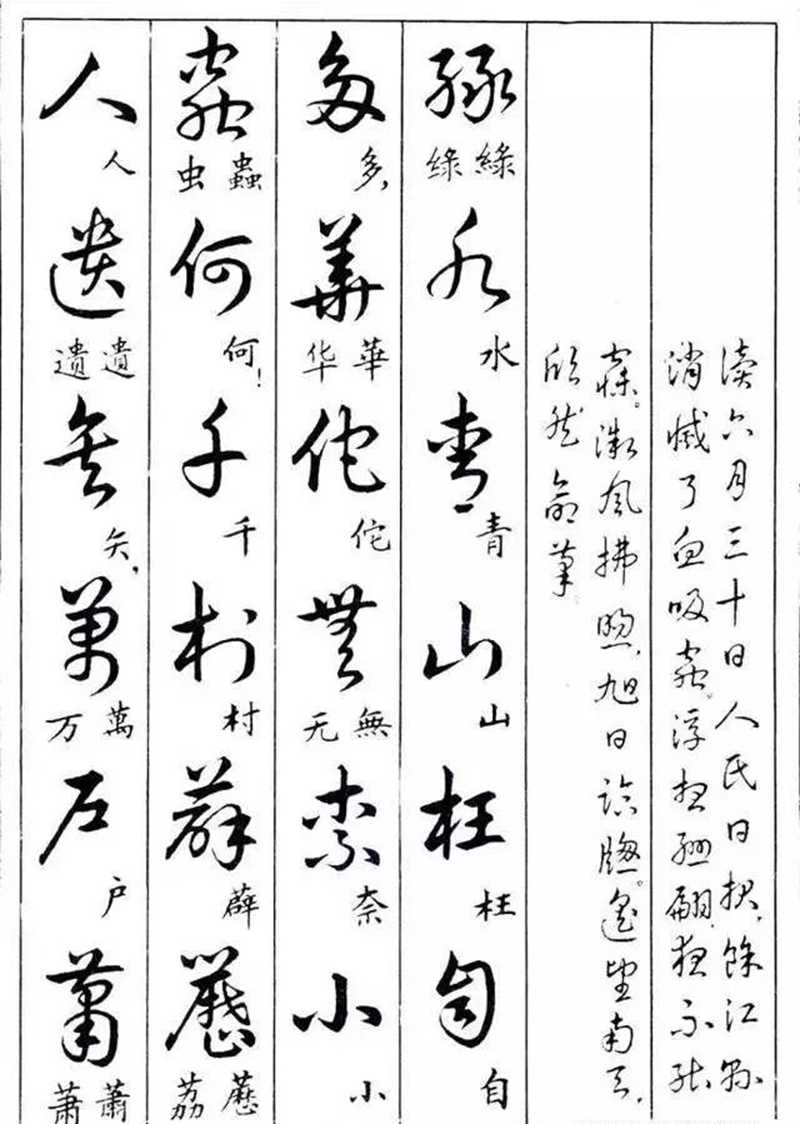 讀六月三十日人民日报,餘江縣
消滅了血吸蟲。浮想聯翩,夜不能
寐。微風拂煦,旭日臨窗。遥望南天,
欣然命筆
綠水青山枉自
綠绿 水 青 山 枉 自
多華佗無奈小
多, 華华 佗 無无 奈 小
蟲何千村薜荔
蟲虫 何! 千 村 薜 荔
人遺矢萬户蕭
人 遺遗 矢, 萬万 户 蕭萧